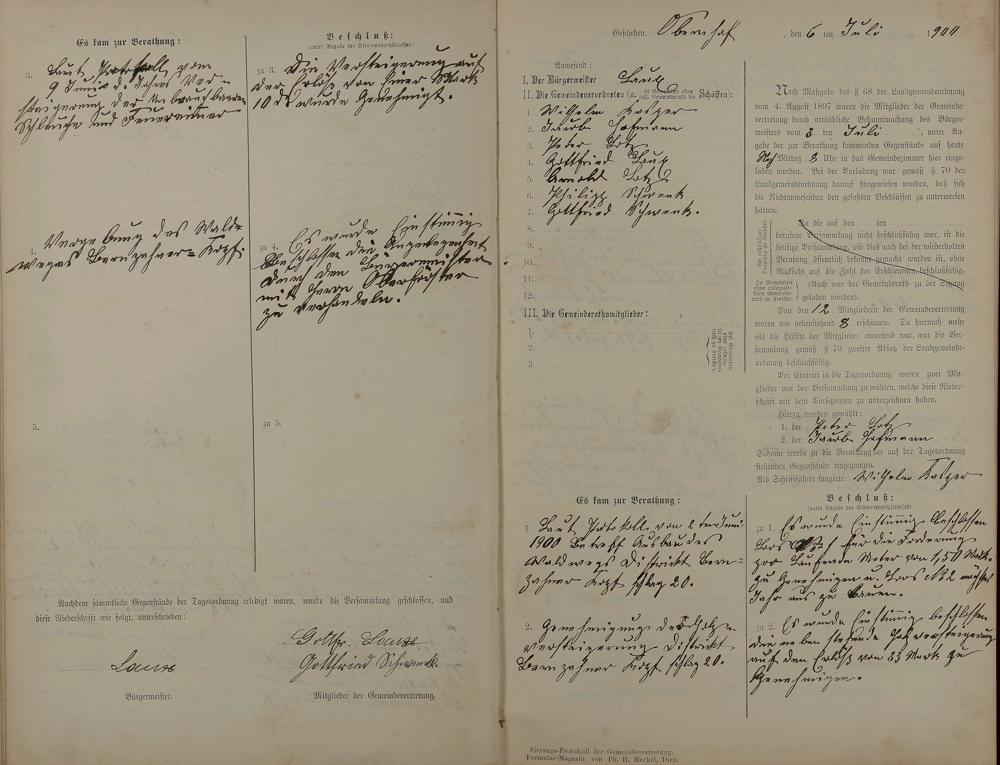 Es kam zur Berathung:
3. Laut Protokoll vom
9 Juni d. Jahres Ver-
steigerung der Unbrauchbaren
Schläuche und Feuereimer
4. Vergebung des Wald-
weges Bernzahner-Kopf.
5.
Beschluß:
(unter Angabe des Stimmenverhältnisses)
zu 3. Die Versteigerung auf
den Erlös von einer Mark
10 d wurde Genehmigt.
zu 4. Es wurde Einstimmig
Beschlossen die Angelegenheit
durch den Bürgermeister
mit Herrn Oberförster
zu verhandeln.
zu 5.
Nachdem sämmtliche Gegenstände der Tagesordnung erledigt waren, wurde die Versammlung geschlossen, und
diese Niederschrift wie folgt, unterschrieben:
Gottfr.
Gottfried Schwenk
Bürgermeister.
Mitglieder der Gemeindevertretung.
Geschehen, Obernhof, den 6 ten Juli 1900
Anwesend:
I. Der Bürgermeister
II. Die Gemeindeverordneten (u. in Gemeinden ohne coll. Gemeinderath die Schöffen):
1. Wilhelm Kasper
2. Jacob Hofmann
3. Peter Lotz
4. Gottfried
5. Arnold Lotz
6. Philipp Schwenk
7. Gottfried Schwenk.
8.
9.
10.
11.
12.
III. Die Gemeinderathsmitglieder:
1.
2.
3.
Nach Maßgabe des § 68 der Landgemeindeordnung
vom 4. August 1897 waren die Mitglieder der Gemeinde-
vertretung durch ortsübliche Bekanntmachung des Bürger-
meisters vom 3 ten Juli, unter An-
gabe der zur Berathung kommenden Gegenstände auf heute
Mittag 8 Uhr in das Gemeindezimmer hier einge-
laden worden. Bei der Vorladung war gemäß § 70 der
Landgemeindeordnung darauf hingewiesen worden, daß sich
die Nichtanwesenden den gefaßten Beschlüssen zu unterwerfen
hätten.
Da die auf den ten
berufene Versammlung nicht beschlußfähig war, ist die
heutige Versammlung, wie dies auch bei der wiederholten
Berufung öffentlich bekannt gemacht worden ist, ohne
Rücksicht auf die Zahl der Erschienenen beschlußfähig.
(Auch war der Gemeinderath zu der Sitzung
geladen worden).
Von den 12 Mitgliedern der Gemeindevertretung
waren wie nebenstehend 8 erschienen. Da hiernach mehr
als die Hälfte der Mitglieder anwesend war, war die Ver-
sammlung gemäß § 70 zweiter Absatz der Landgemeinde-
ordnung beschlußfähig.
Vor Eintritt in die Tagesordnung waren zwei Mit-
glieder von der Versammlung zu wählen, welche diese Nieder-
schrift mit dem Vorsitzenden zu unterzeichnen haben.
Hierzu wurden gewählt:
1. der Peter Lotz
2. der Jacob Hofmann
Sodann wurde in die Berathung der auf der Tagesordnung
stehenden Gegenstände eingegangen.
Als Schriftführer fungirte Wilhelm Kasper
Es kam zur Berathung:
1. Laut Protokoll, vom 2 ten Juni
1900 Betreff Ausbau des
Waldwegs Distrikt Bern-
zahner Kopf schlag 20.
2. Genehmigung der Holz-
versteigerung Distrikt
Bernzahner Kopf schlag 20.
Beschluß:
(unter Angabe des Stimmenverhältnisses)
zu 1. Es wurde Einstimmig beschlossen
Loos No 1 für die Forderung
pro Laufende Meter von 1,50 Mark
zu Genehmigen u. Loos No 2 nächstes
Jahr aus zu bauen.
zu 2. Es wurde Einstimmig beschlossen
die neben stehende Holzversteigerung
auf den Erlöß von 33 Mark zu
Genehmigen.
Sitzungs-Protokoll der Gemeindevertretung.
Formular-Magazin von Ph. H. Meckel, Diez.